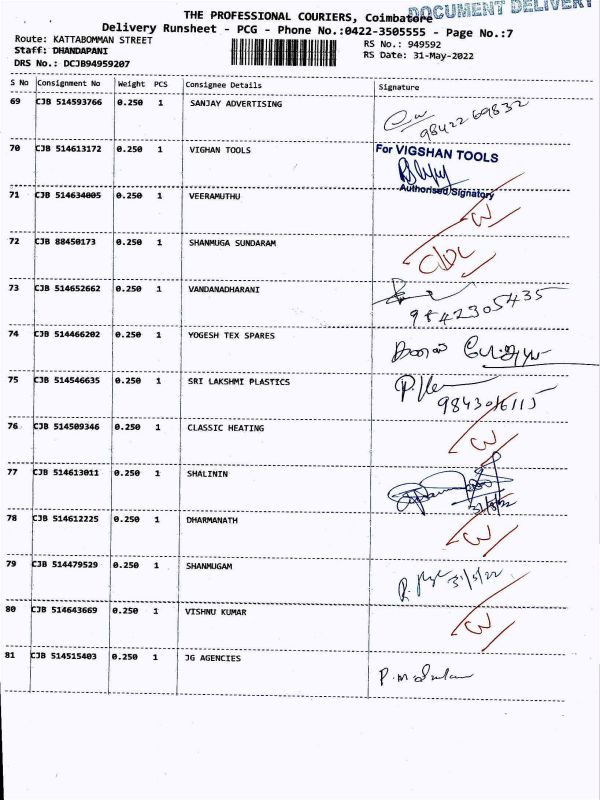 DOCUMENT DELIVERY
THE PROFESSIONAL COURIERS, Coimbatore
Delivery Runsheet - PCG - Phone No.:0422-3505555 - Page No.:7
Route: KATTABOMMAN STREET RS No.: 949592
Staff: DHANDAPANI RS Date: 31-May-2022
DRS No.: DCJB94959207
S No Consignment No Weight PCS Consignee Details Signature
69 CJB 514593766 0.250 1 SANJAY ADVERTISING
9842269832
70 CJB 514613172 0.250 1 VIGHAN TOOLS For VIGSHAN TOOLS
Authorised Signatory
71 CJB 514634005 0.250 1 VEERAMUTHU
72 CJB 88450173 0.250 1 SHANMUGA SUNDARAM
73 CJB 514652662 0.250 1 VANDANADHARANI
9842305435
74 CJB 514466202 0.250 1 YOGESH TEX SPARES
75 CJB 514546635 0.250 1 SRI LAKSHMI PLASTICS
9843016115
76 CJB 514509346 0.250 1 CLASSIC HEATING
77 CJB 514613011 0.250 1 SHALININ
31/5/22
78 CJB 514612225 0.250 1 DHARMANATH
79 CJB 514479529 0.250 1 SHANMUGAM
31/5/22
80 CJB 514643669 0.250 1 VISHNU KUMAR
81 CJB 514515403 0.250 1 JG AGENCIES